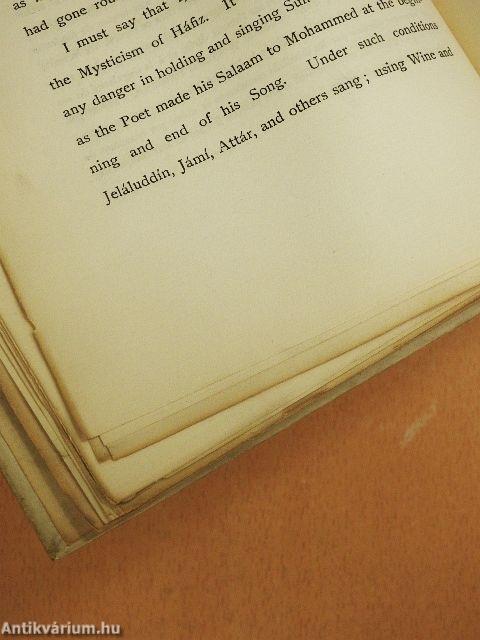 as
had gone rou
I must say that
the Mysticism of Háfiz. It
any danger in holding and singing Súf
as the Poet made his Salaam to Mohammed at the begin-
ning and end of his Song. Under such conditions
Jeláluddín, Jámí, Attár, and others sang; using Wine and
Antikvárium.hu